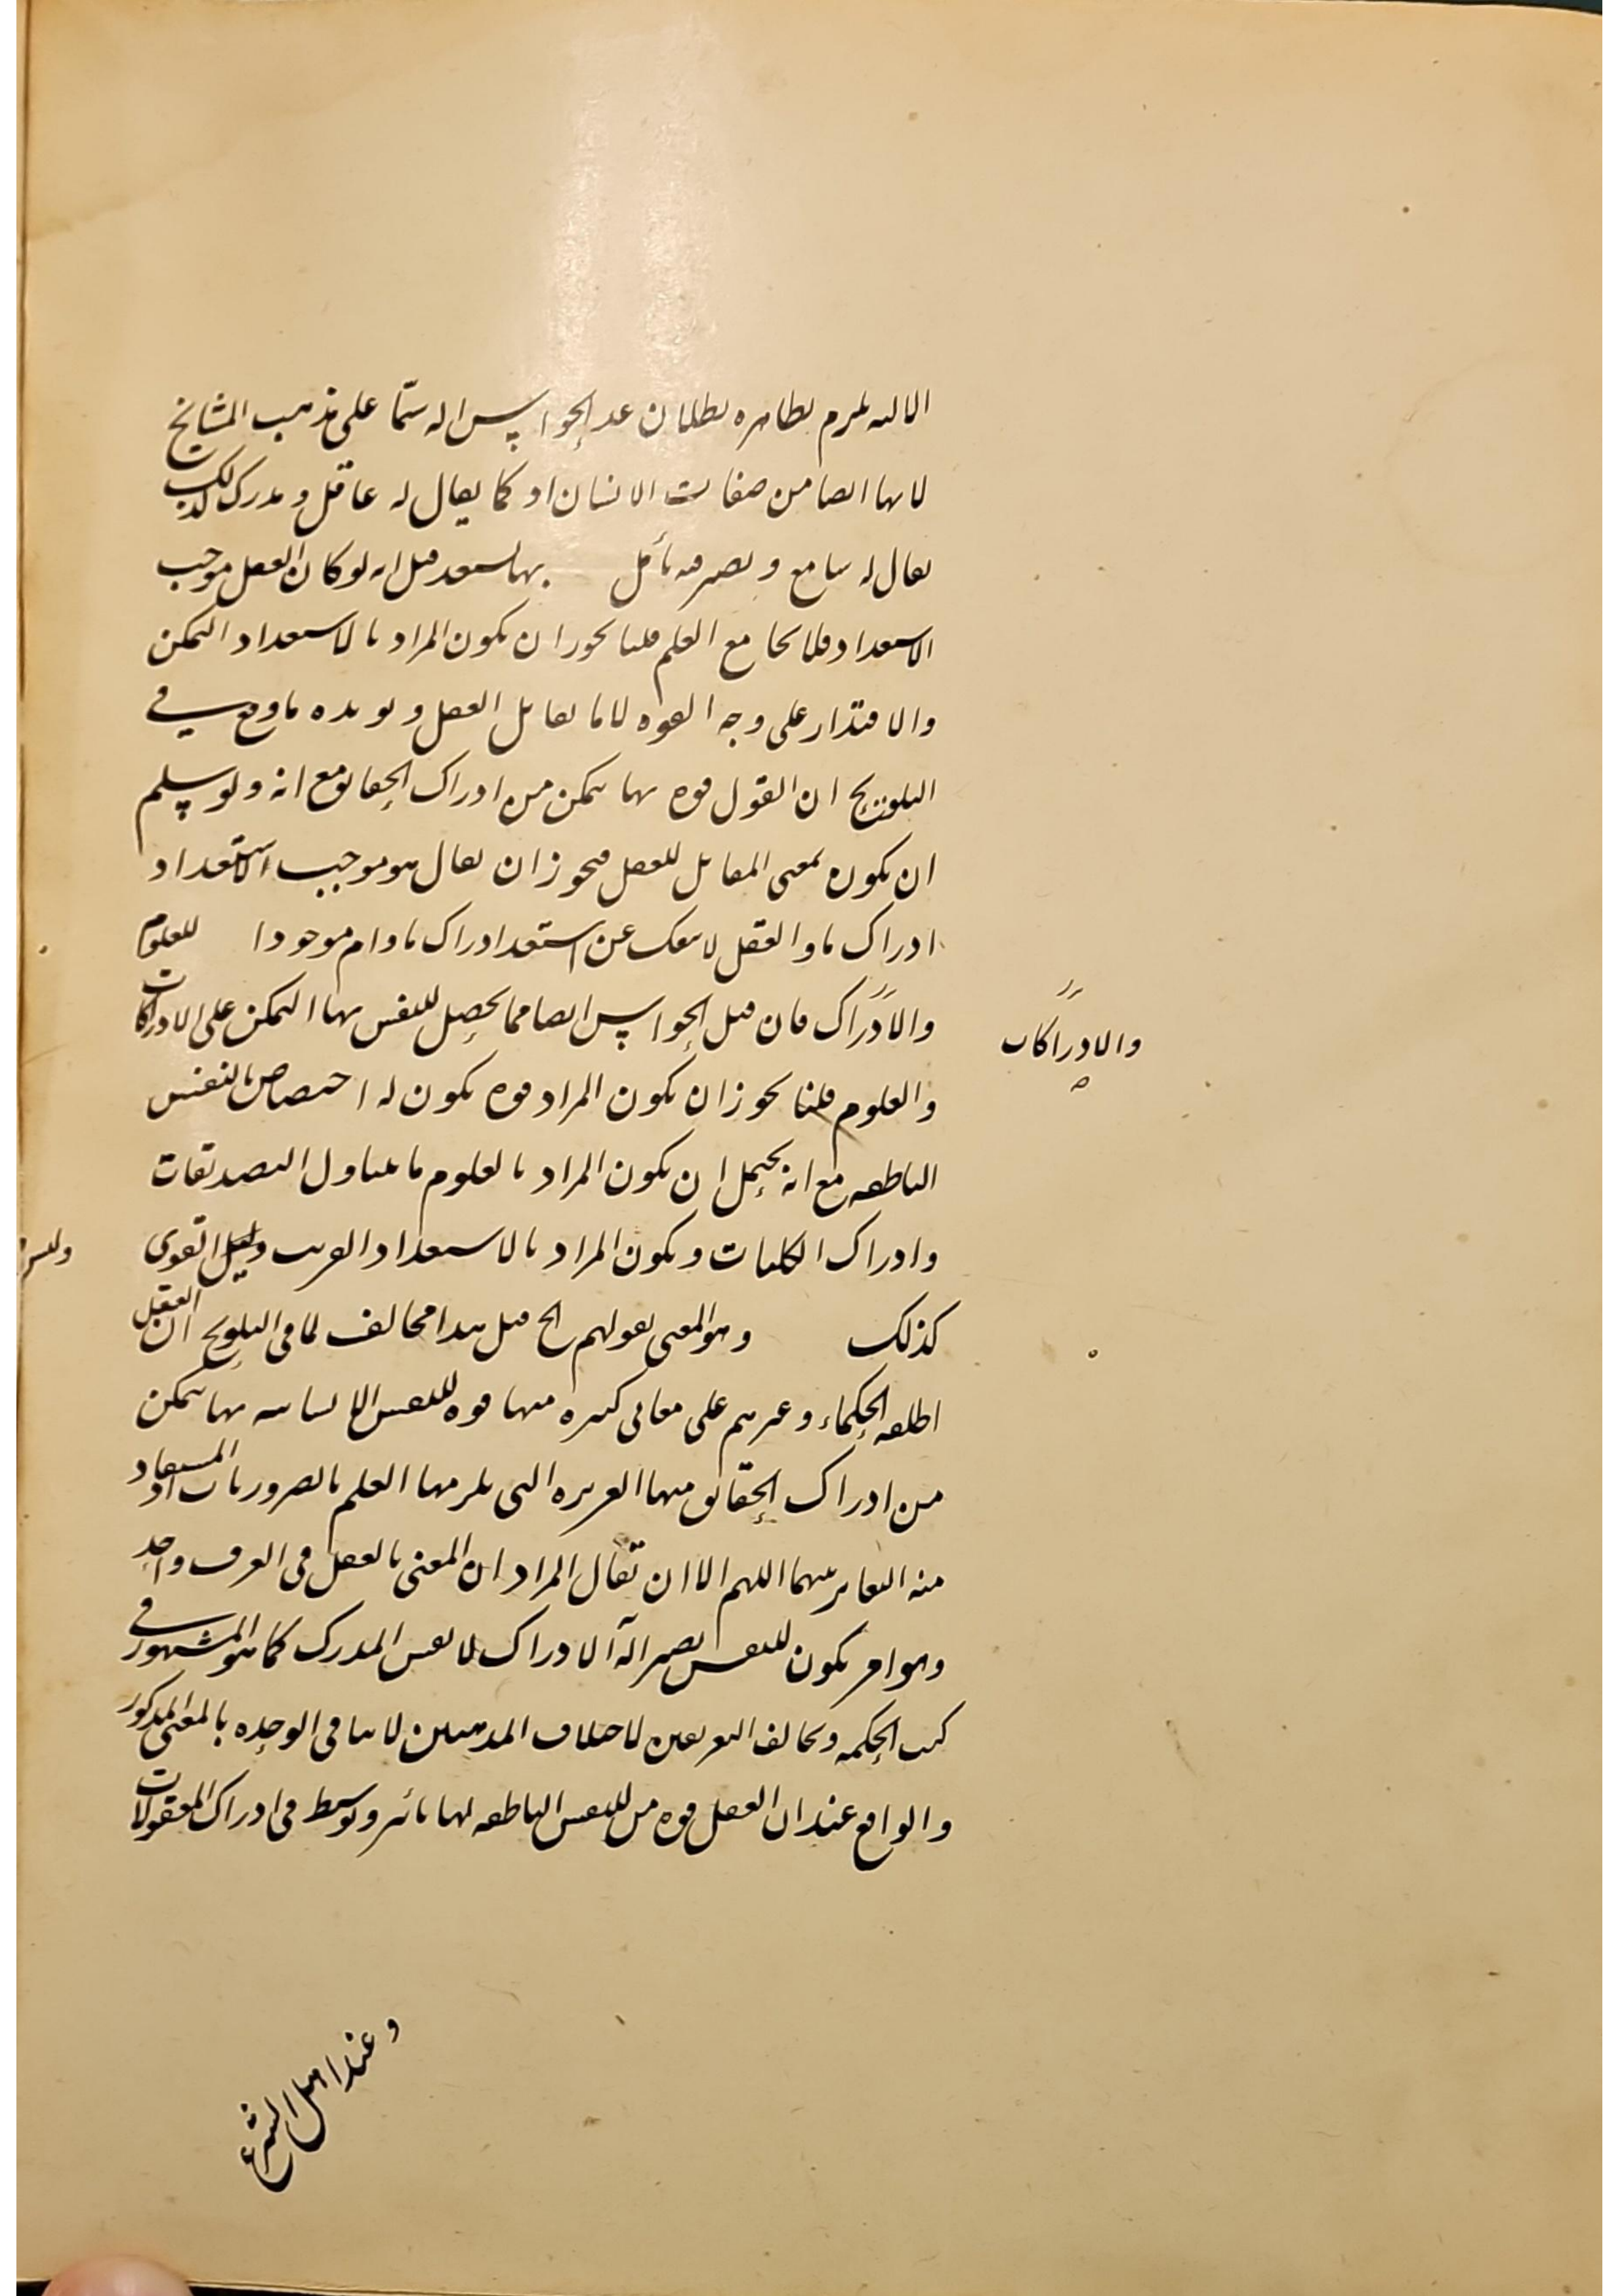 الا انه يلزم بظاهره بطلان عد الحواس اله سيّما على مذهب المشايخ
لانها ايضا من صفات الانسان اذ كما يقال له عاقل و مدرك كذلك
يقال له سامع و بصير فيه تأمل بها يستعد قيل انه لو كان العقل موجب
الاستعداد فلا يجامع العلم قلنا يجوز ان يكون المراد بالاستعداد التمكن
والاقتدار على وجه القوه لا ما يقابل الفعل و يويده ما وقع في
التلويح ان القول قوه بها يتمكن من ادراك الحقايق مع انه ولو سلم
ان يكون بمعنى المقابل للفعل فيجوز ان يقال هو موجب الاستعداد
ادراك ما و العقل لا ينفك عن استعداد ادراك ما دام موجودا للعلوم
والادراك فان قيل الحواس ايضا مما يحصل للنفس بها التمكن على الادراكات
والادراكات
والعلوم قلنا يجوز ان يكون المراد قوه يكون له اختصاص بالنفس
الناطقه مع انه يحتمل ان يكون المراد بالعلوم ما يتناول التصديقات
وادراك الكليات و يكون المراد بالاستعداد القريب وليس القوى
وليس
كذلك وهو المعنى بقولهم الخ قيل هذا مخالف لما في التلويح ان العقل
اطلقه الحكماء و غيرهم على معانى كثيره منها قوه للنفس الانسانيه بها يتمكن
من ادراك الحقايق منها الغريزه التى يلزمها العلم بالضروريات اذ المستفاد
منه التغاير بينهما اللهم الا ان يقال المراد ان المعنى بالعقل فى العرف واحد
وهو امر يكون للنفس بصير الة الادراك لا نفس المدرك كما هو المشهور في
كتب الحكمه و تخالف التعريفين لاختلاف المذهبين لا ينافى الوحده بالمعنى المذكور
والواقع عند ان العقل قوه من للنفس الناطقه لها تاثير و توسط فى ادراك المعقولات
وعند اهل الشرع